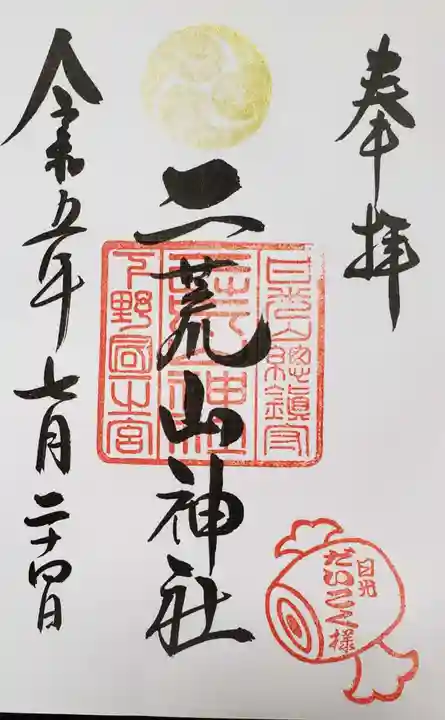 奉拝
二荒山神社
日光山総鎮守
二荒山神社
下野国一之宮
令和五年七月二十四日
日光
だいこく様